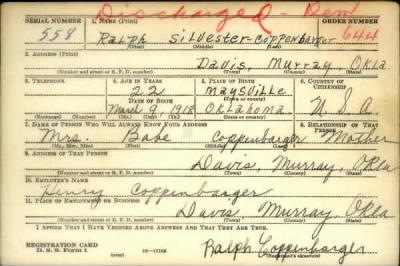 Discharged
SERIAL NUMBER 1. NAME (Print) ORDER NUMBER
558 RALPH SILVESTER COPPENBARGER 644
(First) (Middle) (Last)
2. ADDRESS (Print)
Davis, Murray, Okla
(Number and street or R. F. D. number) (Town) (County) (State)
3. TELEPHONE 4. AGE IN YEARS 5. PLACE OF BIRTH 6. COUNTRY OF CITIZENSHIP
22 Maysville
DATE OF BIRTH
March 9, 1918 Oklahoma U. S. A.
7. NAME OF PERSON WHO WILL ALWAYS KNOW YOUR ADDRESS 8. RELATIONSHIP OF THAT PERSON
Mrs. Babe Coppenbarger Mother
(Mr., Mrs., Miss) (First) (Middle) (Last)
9. ADDRESS OF THAT PERSON
Davis, Murray, Okla
(Number and street or R. F. D. number) (Town) (County) (State)
10. EMPLOYER'S NAME
Henry Coppenbarger
11. PLACE OF EMPLOYMENT OR BUSINESS
Davis, Murray, Okla
(Number and street or R. F. D. number) (Town) (County) (State)
I AFFIRM THAT I HAVE VERIFIED ABOVE ANSWERS AND THAT THEY ARE TRUE.
REGISTRATION CARD
D. S. S. Form 1
Ralph Coppenbarger
(Registrant's signature)